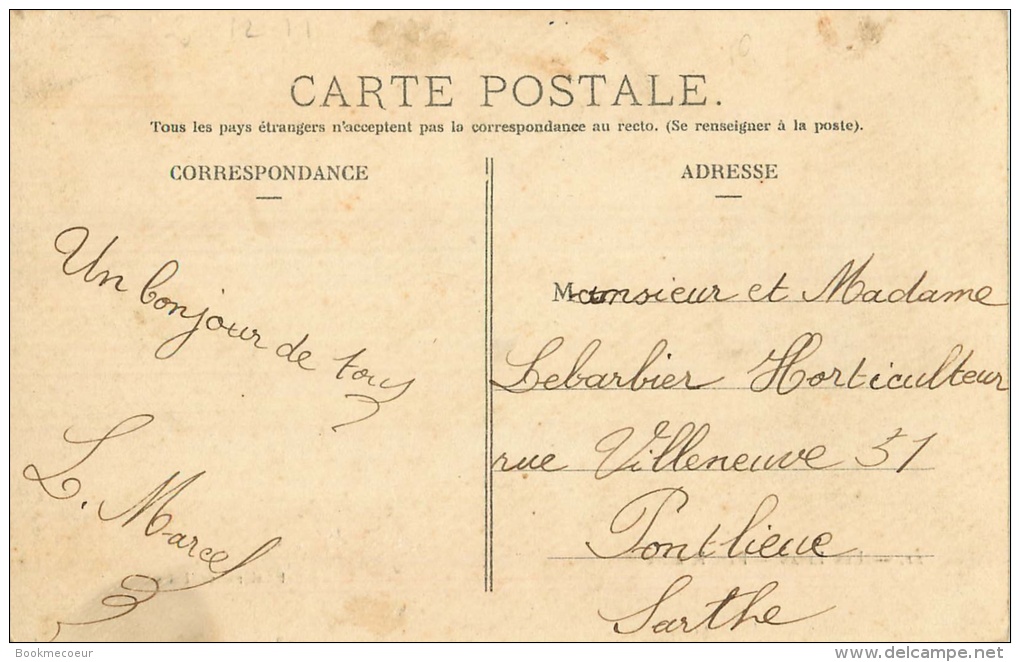 12-11
CARTE POSTALE.
Tous les pays étrangers n'acceptent pas la correspondance au recto. (Se renseigner à la poste).
CORRESPONDANCE
ADRESSE
Un bonjour de tous
L. Marcel
Monsieur et Madame
Lebarbier Horticulteur
rue Villeneuve 51
Pontlieue
Sarthe
Bookmecoeur
delcampe.net